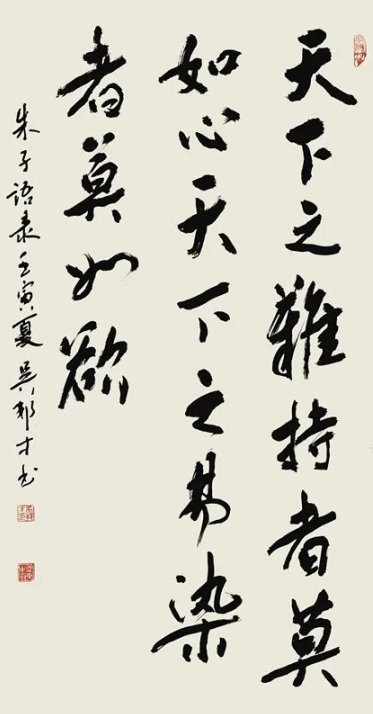 天下之難持者莫
如心天下之易染
者莫如欲
朱子語录壬寅夏吴邦才书